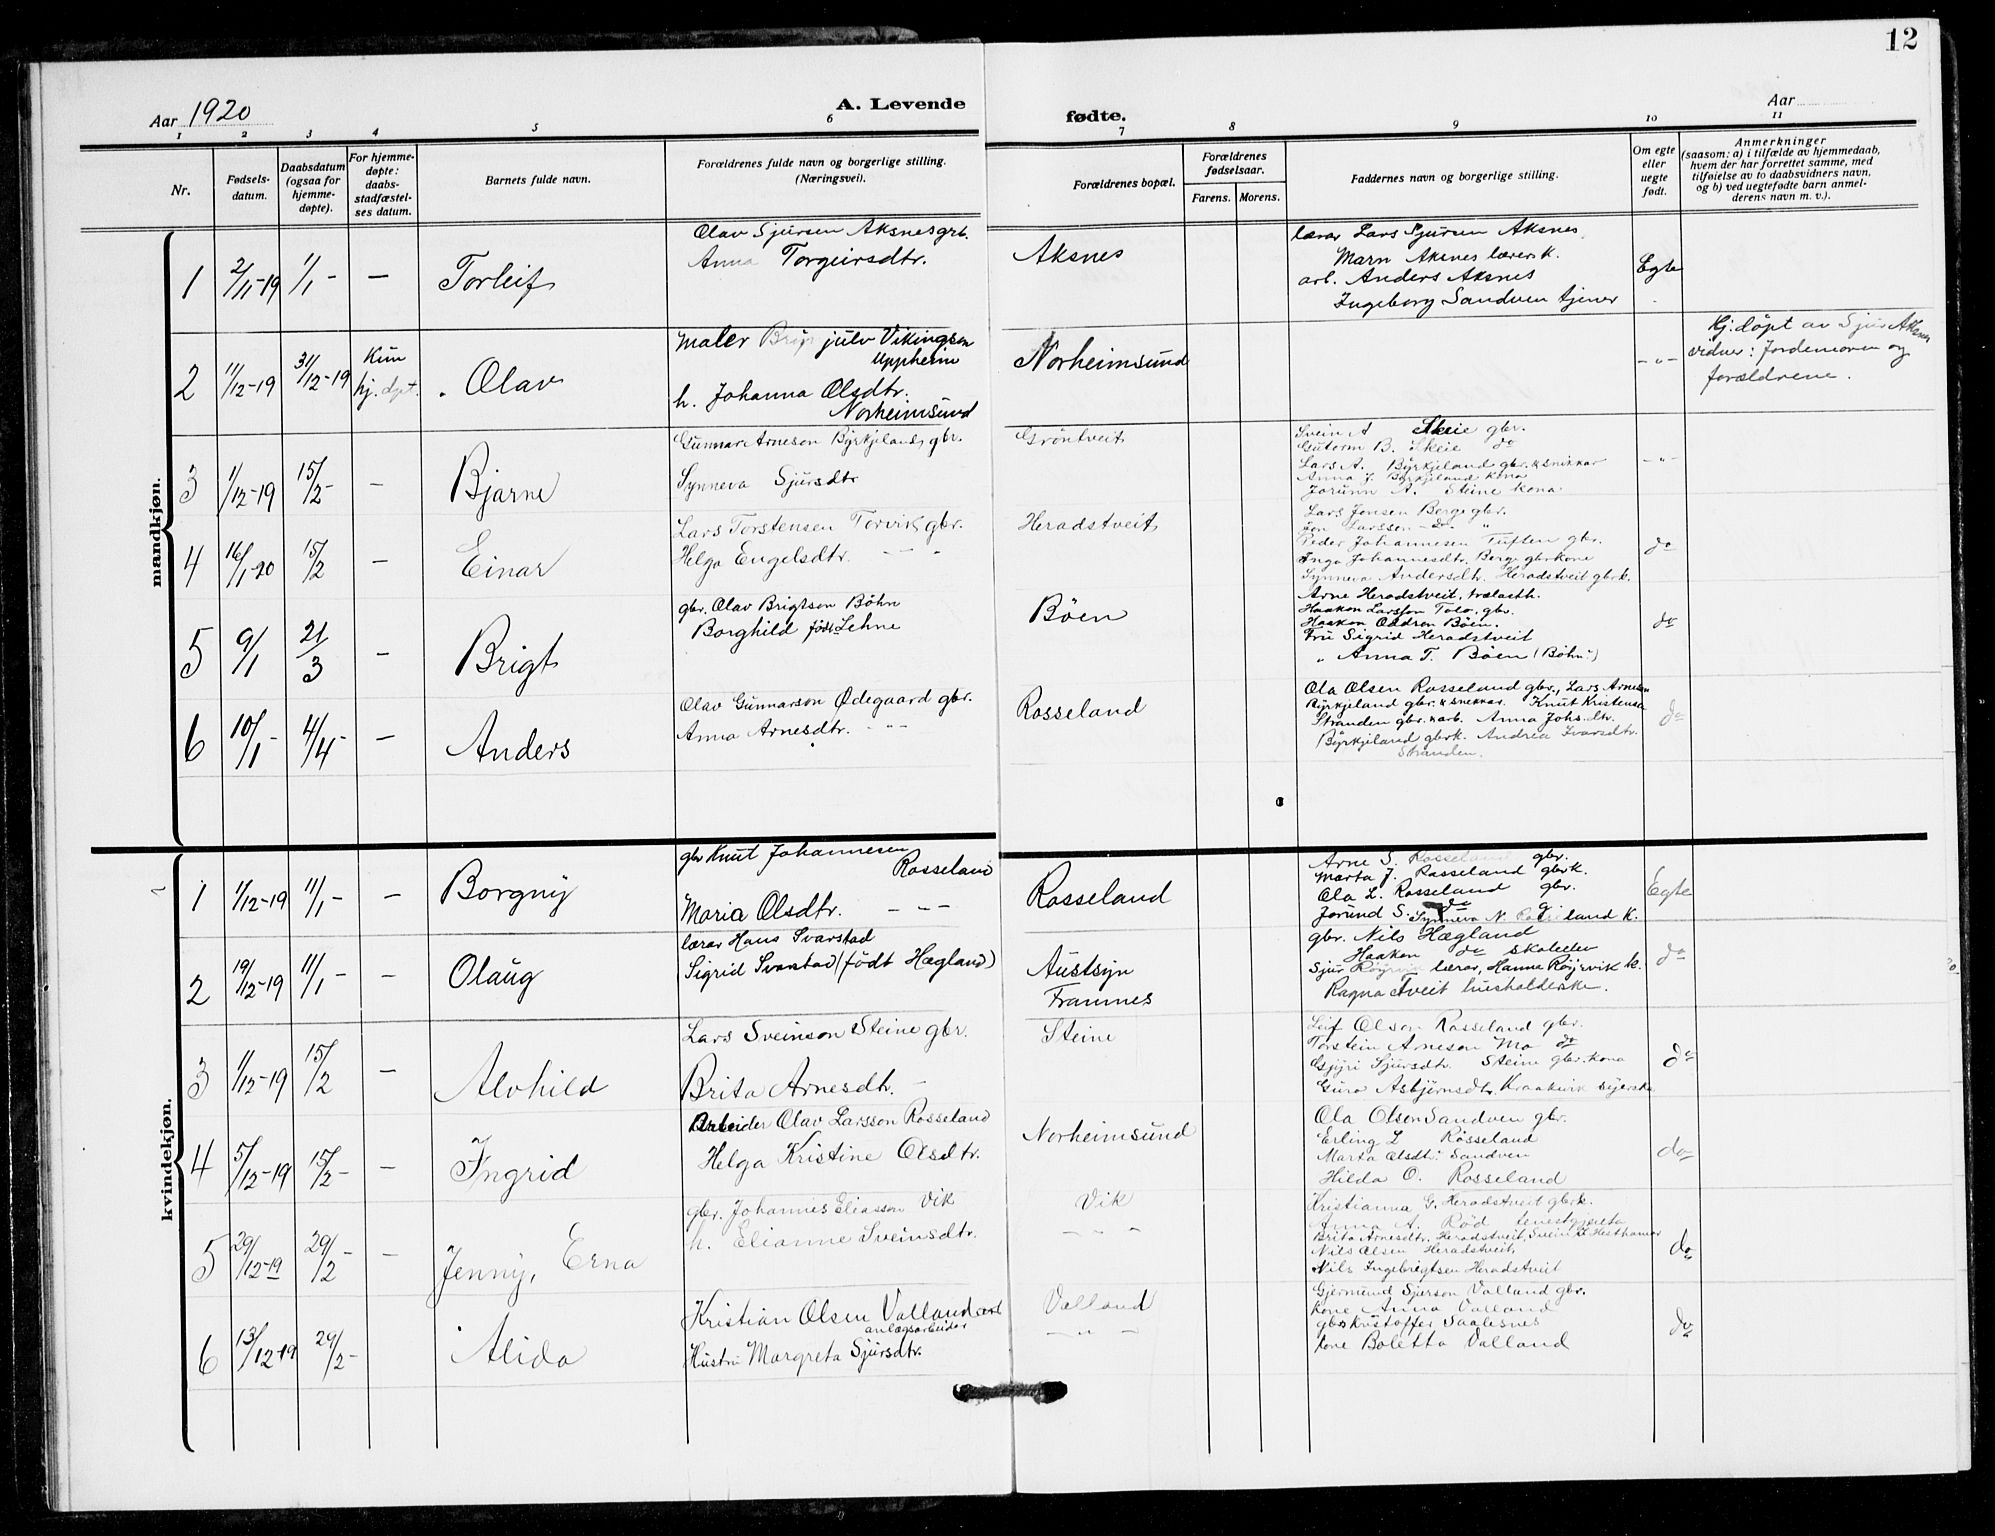 12
Aar 1920
A. Levende
fødte.
Aar
1 2 3 4 5 6 7 8 9 10 11
Nr.
Fødsels-
datum.
Daabsdatum
(ogsaa for
hjemme-
døpte).
For hjemme-
døpte:
daabs-
stadfæstel-
ses datum.
Barnets fulde navn.
Forældrenes fulde navn og borgerlige stilling.
(Næringsvei).
Forældrenes bopæl.
Forældrenes
fødselsaar.
Farens. Morens.
Faddernes navn og borgerlige stilling.
Om egte
eller
uegte
født.
Anmerkninger
(saasom: a) i tilfælde av hjemmedaab,
hvem der har forrettet samme, med
tilføielse av to daabsvidners navn,
og b) ved uegtefødte barn anmel-
derens navn m. v.).
mandkjøn.
1 2/11-19 1/1- — Torleif
Olav Sjursen Aksnes grb.
Anna Torgeirsdtr.
Aksnes
lærar Lars Sjursen Aksnes
Marn Aksnes lærerk.
arb. Anders Aksnes
Ingeborg Sandven tjener
Egte
2 11/12-19 31/12-19
Kun
hj. dpt.
Olav
Maler Brynjulv Vikingson
Uppheim
h. Johanna Olsdtr.
Norheimsund
Norheimsund
-"-
Hj: døpt av Sjur Aksnes
vidner: Jordemoren og
forældrene.
3 1/12-19 15/2- — Bjarne
Gunnar Arneson Byrkjeland gbr.
Synneva Sjursdtr
Gröntveit
Svein A Skeie gbr.
Gutorm B. Skeie do
Lars A. Byrkjeland gbr. & snikkar
Anna J. Byrkjeland kona
Jorunn A. Steine kona
-"-
4 16/1-20 15/2 — Einar
Lars Torstensen Torvik gbr.
Helga Engelsdtr. - - -
Heradstveit
Lars Jonsen Berge gbr.
Jon Larsson - do - "
Peder Johannesen Tuften gbr.
Inga Johannesdtr. Berge gbrkone
Synneva Andersdtr. Heradstveit gbrk.
do
5 9/1 21/3 — Brigt
gbr. Olav Brigtson Böhn
Borghild født Lehne
Böen
Arne Heradstveit, trælasth.
Haakon Larsson Tolo, gbr.
Haakon Böen.
Fru Sigrid Heradstveit
" Anna T. Böen (Böhn)
do
6 10/1- 4/4- — Anders
Olav Gunnarson Ødegaard gbr.
Anna Arnesdtr. - "-
Rosseland
Ola Olsen Rosseland gbr., Lars Arneson
Byrkjeland gbr. & snekkar. Knut Kristensa
Stranden gbr. & arb. Anna Johs.dtr.
Byrkjeland gbrk. Andrea Ivarsdtr.
Stranden.
do
kvindekjøn.
1 1/12-19 11/1- — Borgny
gbr Knut Johannesen
Rosseland
Maria Olsdtr. - - -
Rosseland
Arne S. Rosseland gbr.
Marta J. Rosseland gbrk.
Ola L. Rosseland gbr.
Jorund S. do Synneva N. Rosseland K.
Egte
2 19/12-19 11/1- — Olaug
lærar Hans Svarstad
Sigrid Svarstad (født Hægland)
Austsyn
Framnes
gbr. Nils Hægland
Haakon do skoleelev
Sjur Röyrvik lærar, Hanna Röyrvik k.
Ragna Tveit husholderske.
do
3 1/12-19 15/2 — Alvhild
Lars Sveinson Steine gbr.
Brita Arnesdtr. -
Steine
Leif Olson Rosseland gbr.
Torstein Arneson Mo do
Gjyri Sjursdtr. Steine gbr. kona
Guro Asbjørnsdtr. Kraakevik syerske
do
4 5/12-19 15/2- — Ingrid
Arbeider Olav Larsson Rosseland
Helga Kristine Olsdtr.
Norheimsund
Ola Olsen Sandven gbr.
Erling L Rosseland
Marta Olsdtr. Sandven
Hilda O. Rosseland
do
5 29/12-19 29/2- — Jenny, Erna
gbr. Johannes Eliasson Vik
h. Elianne Sveinsdtr.
Vik
- - -
Kristianna G. Heradstveit gbrk.
Anna A. Rød tenestgjenta
Brita Arnesdtr. Heradstveit, Svein Hesthamar
Nils Olsen Heradstveit
Nils Ingebrigtsen Heradstveit
do
6 13/12-19 29/2- Alida
Kristian Olsen Valland
anlægsarbeider
Hustru Margreta Sjursdtr.
Valland
- " -
Gjermund Sjurson Valland gbr.
kone Anna Valland
gbr Kristoffer Saalesnes
kone Boletta Valland
do